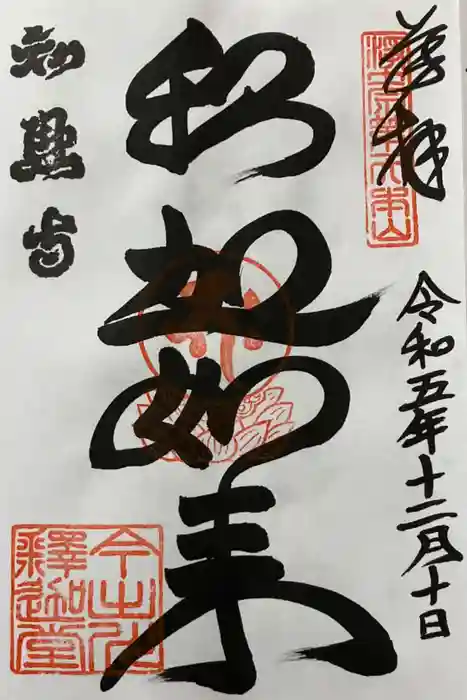 奉拝
令和五年十二月十日
釈迦如来
知恩寺
今出川
釋迦堂